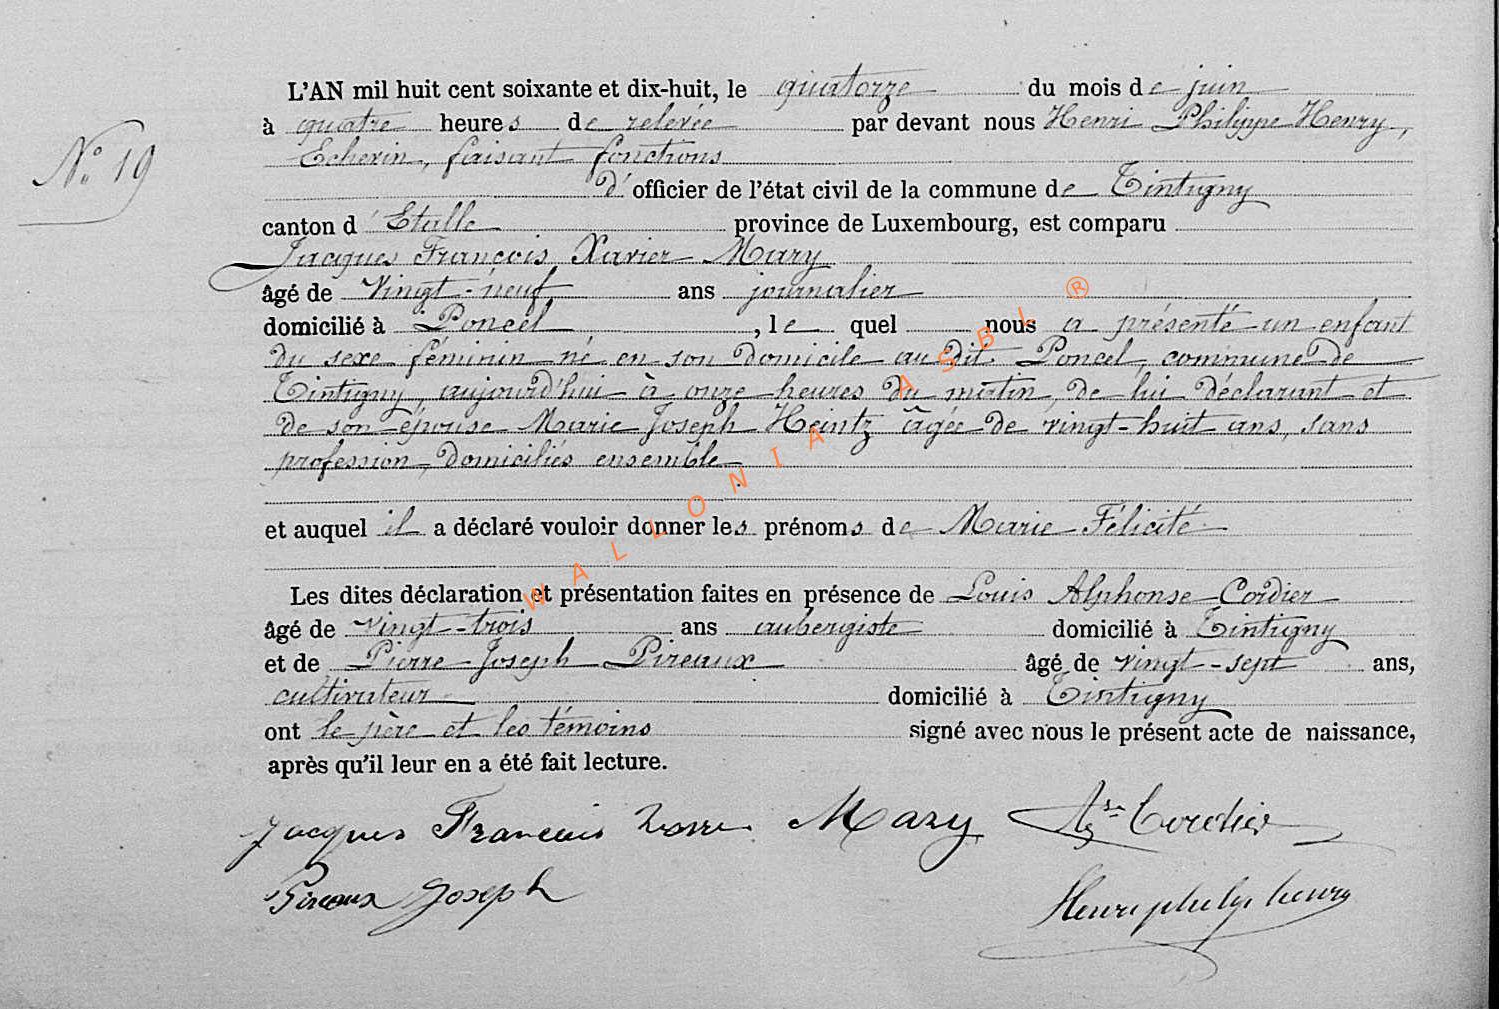 N° 19
L'AN mil huit cent soixante et dix-huit, le quatorze du mois de juin
à quatre heures de relevée par devant nous Henri Philippe Henry,
Echevin, faisant fonctions
d' officier de l'état civil de la commune de Tintigny
canton d'Etalle province de Luxembourg, est comparu
Jacques François Xavier Mary
âgé de vingt-neuf ans journalier
domicilié à Poncel, le quel nous a présenté un enfant
du sexe féminin né en son domicile au dit Poncel, commune de
Tintigny, aujourd'hui à onze heures du matin, de lui déclarant et
de son épouse Marie Joseph Heintz âgée de vingt-huit ans, sans
profession, domiciliés ensemble
et auquel il a déclaré vouloir donner les prénoms de Marie Félicité
Les dites déclaration et présentation faites en présence de Louis Alphonse Cordier
âgé de vingt-trois ans aubergiste domicilié à Tintigny
et de Pierre Joseph Pireaux âgé de vingt-sept ans,
cultivateur domicilié à Tintigny
ont le père et les témoins signé avec nous le présent acte de naissance,
après qu'il leur en a été fait lecture.
Jacques Francois Mary Cordier
Pireaux Joseph Henri
WALLONIA ASBL ®